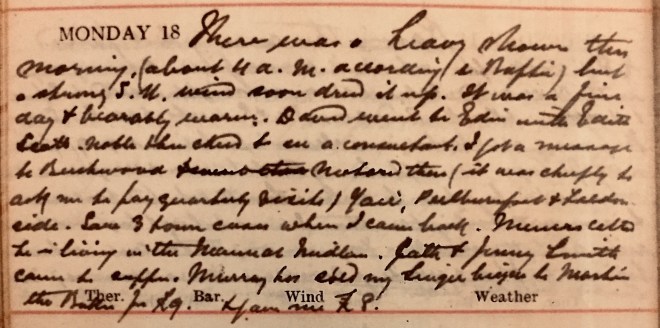 MONDAY 18 There was a heavy shower this
morning, (about 4 a. m. according to Baffie) but
a strong S. W. wind soon dried it up. It was a fine
day & bearably warm. David went to Edin with Edith
Scott. Noble then cried to see a consultant. I got a message
to Birkwood (it was chiefly to
ask me to pay quarterly visits) Yair,
side. Saw 3 town cases when I came back. called
he is living in the Manse at . Cath & Jenny Smith
came to supper. Murray has sold my to Martin
the for £9. & gave me £8.
Ther. Bar. Wind Weather